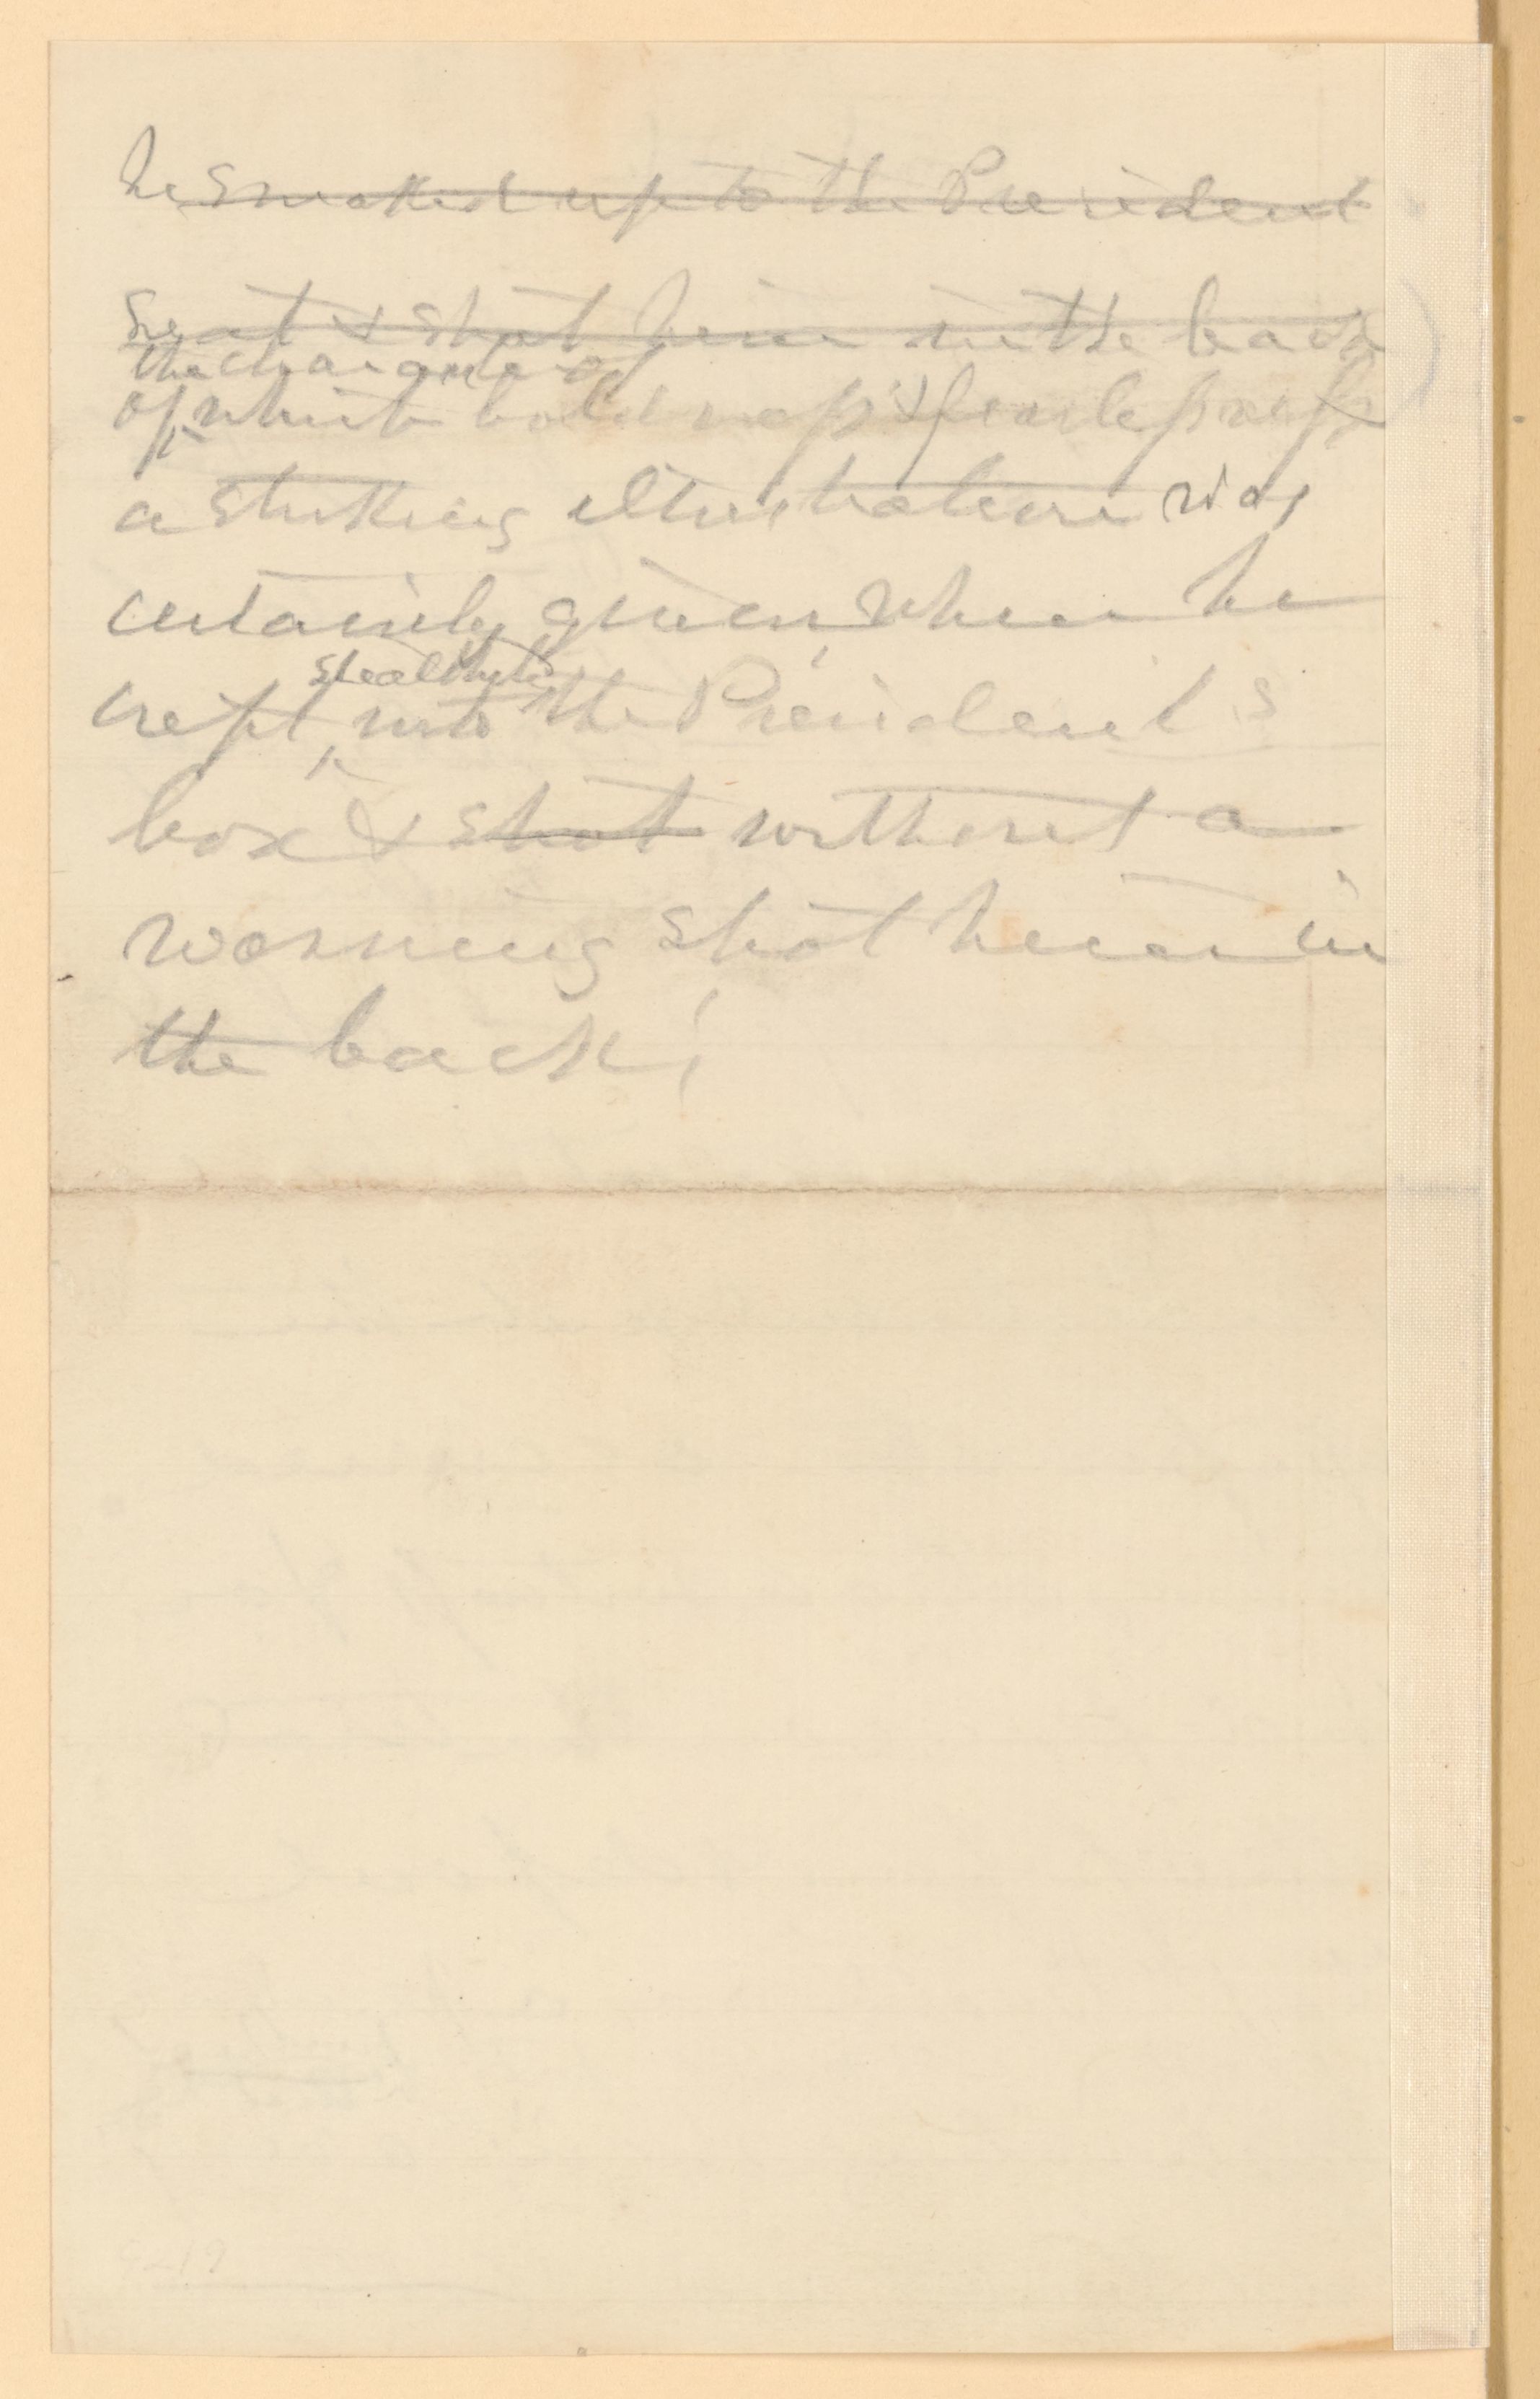 he sneaked up to the President
seat & shot him in the back
the character of
of which boldness & fearlessness
a striking illustration was
certainly given, when he
stealthily
crept into the President s
box & shot without a
warning shot him in
the back;